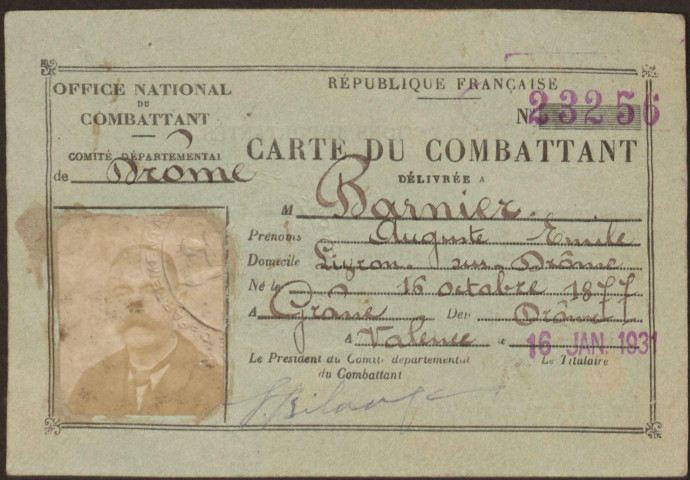 OFFICE NATIONAL
DU
COMBATTANT
COMITÉ DÉPARTEMENTAL
de Drôme
RÉPUBLIQUE FRANÇAISE
N° 23256
CARTE DU COMBATTANT
DÉLIVRÉE A
M Barnier.
Prénoms Auguste Emile
Domicile Livron-sur-Drôme
Né le 16 octobre 1877
A Grâne Dep Drôme
A Valence le 16 JAN. 1931
Le President du Comité départemental
du Combattant
Le Titulaire